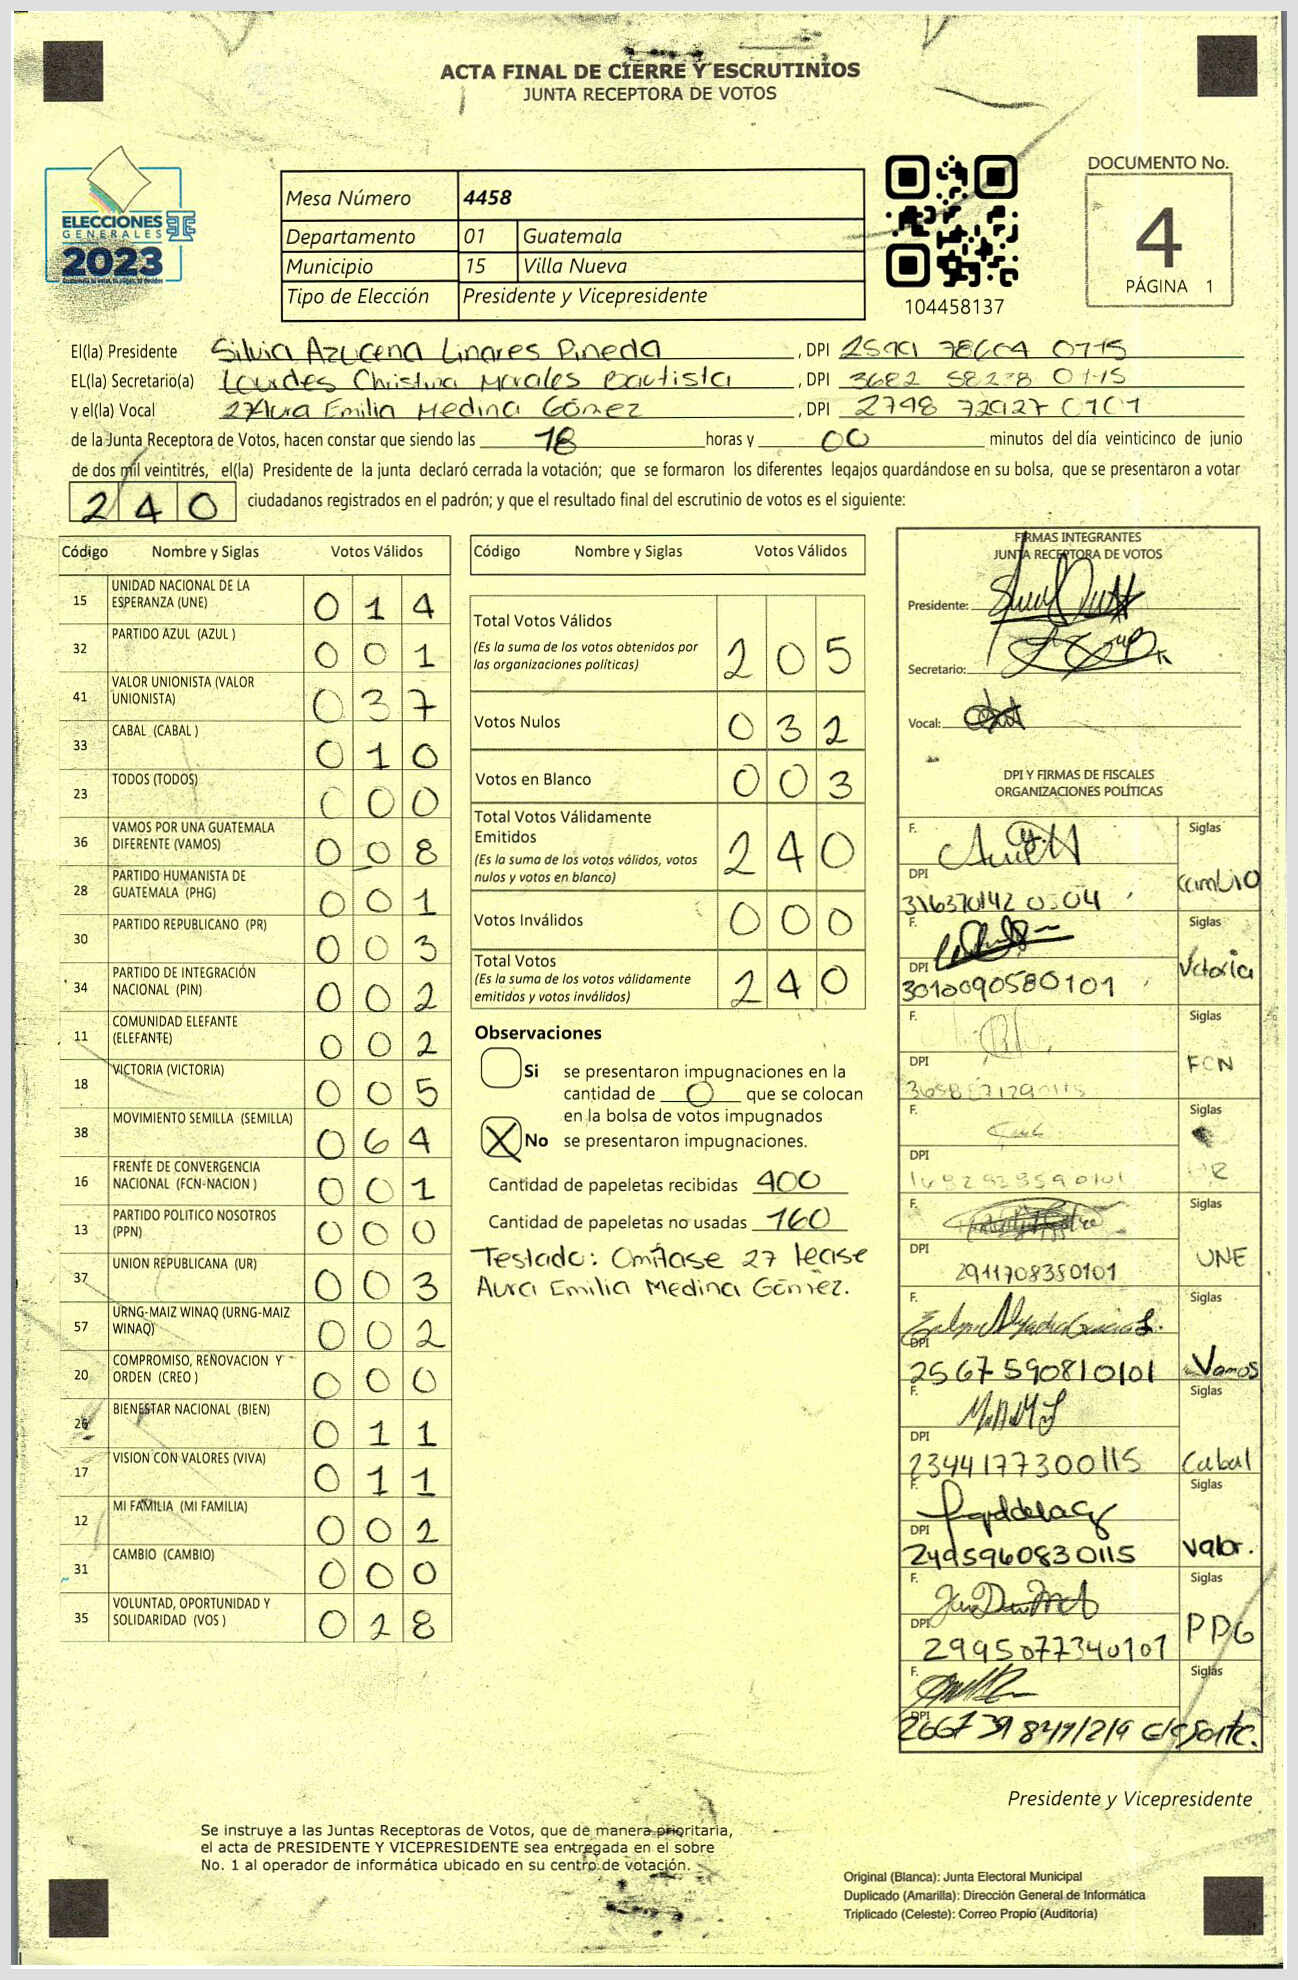 ACTA FINAL DE CIERRE Y ESCRUTINIOS
JUNTA RECEPTORA DE VOTOS
ELECCIONES
GENERALES
2023
Mesa Número 4458
Departamento 01 Guatemala
Municipio 15 Villa Nueva
Tipo de Elección Presidente y Vicepresidente
104458137
DOCUMENTO No.
4
PÁGINA 1
El(la) Presidente Silvia Azucena Linares Pineda, DPI 0715
EL(la) Secretario(a) Lourdes Christina Morales Bautista, DPI 3682 58238 0115
y el(la) Vocal 27Aura Emilia Medina Gómez, DPI 2798 72927 0101
de la Junta Receptora de Votos, hacen constar que siendo las 18 horas y 00 minutos del día veinticinco de junio
de dos mil veintitrés, el(la) Presidente de la junta declaró cerrada la votación; que se formaron los diferentes legajos guardándose en su bolsa, que se presentaron a votar
240 ciudadanos registrados en el padrón; y que el resultado final del escrutinio de votos es el siguiente:
Código Nombre y Siglas Votos Válidos
15 UNIDAD NACIONAL DE LA
ESPERANZA (UNE) 014
32 PARTIDO AZUL (AZUL ) 001
41 VALOR UNIONISTA (VALOR
UNIONISTA) 037
33 CABAL (CABAL ) 010
23 TODOS (TODOS) 000
36 VAMOS POR UNA GUATEMALA
DIFERENTE (VAMOS) 008
28 PARTIDO HUMANISTA DE
GUATEMALA (PHG) 001
30 PARTIDO REPUBLICANO (PR) 003
34 PARTIDO DE INTEGRACIÓN
NACIONAL (PIN) 002
11 COMUNIDAD ELEFANTE
(ELEFANTE) 002
18 VICTORIA (VICTORIA) 005
38 MOVIMIENTO SEMILLA (SEMILLA) 064
16 FRENTE DE CONVERGENCIA
NACIONAL (FCN-NACION ) 001
13 PARTIDO POLITICO NOSOTROS
(PPN) 000
37 UNION REPUBLICANA (UR) 003
57 URNG-MAIZ WINAQ (URNG-MAIZ
WINAQ) 002
20 COMPROMISO, RENOVACION Y
ORDEN (CREO ) 000
26 BIENESTAR NACIONAL (BIEN) 011
17 VISION CON VALORES (VIVA) 011
12 MI FAMILIA (MI FAMILIA) 002
31 CAMBIO (CAMBIO) 000
35 VOLUNTAD, OPORTUNIDAD Y
SOLIDARIDAD (VOS ) 028
Código Nombre y Siglas Votos Válidos
Total Votos Válidos 205
(Es la suma de los votos obtenidos por
las organizaciones políticas)
Votos Nulos 032
Votos en Blanco 003
Total Votos Válidamente
Emitidos 240
(Es la suma de los votos válidos, votos
nulos y votos en blanco)
Votos Inválidos 000
Total Votos 240
(Es la suma de los votos válidamente
emitidos y votos inválidos)
Observaciones
Si se presentaron impugnaciones en la
cantidad de 0 que se colocan
en la bolsa de votos impugnados
X No se presentaron impugnaciones.
Cantidad de papeletas recibidas 400
Cantidad de papeletas no usadas 160
Testado: Omítase 27 léase
Aura Emilia Medina Gómez.
FIRMAS INTEGRANTES
JUNTA RECEPTORA DE VOTOS
Presidente:
Secretario:
Vocal:
DPI Y FIRMAS DE FISCALES
ORGANIZACIONES POLÍTICAS
F. Siglas
DPI Cambio
F. Siglas
DPI Victoria
3010090580101
F. Siglas
DPI FCN
F. Siglas
DPI UR
F. Siglas
DPI UNE
2911708350101
F. Siglas
DPI Vamos
2567 590810101
F. Siglas
DPI Cabal
2344177300115
F. Siglas
DPI Valor.
2495960830115
F. Siglas
DPI PPG
2995077340101
F. Siglas
DPI
Presidente y Vicepresidente
Se instruye a las Juntas Receptoras de Votos, que de manera prioritaria,
el acta de PRESIDENTE Y VICEPRESIDENTE sea entregada en el sobre
No. 1 al operador de informática ubicado en su centro de votación.
Original (Blanca): Junta Electoral Municipal
Duplicado (Amarilla): Dirección General de Informática
Triplicado (Celeste): Correo Propio (Auditoría)